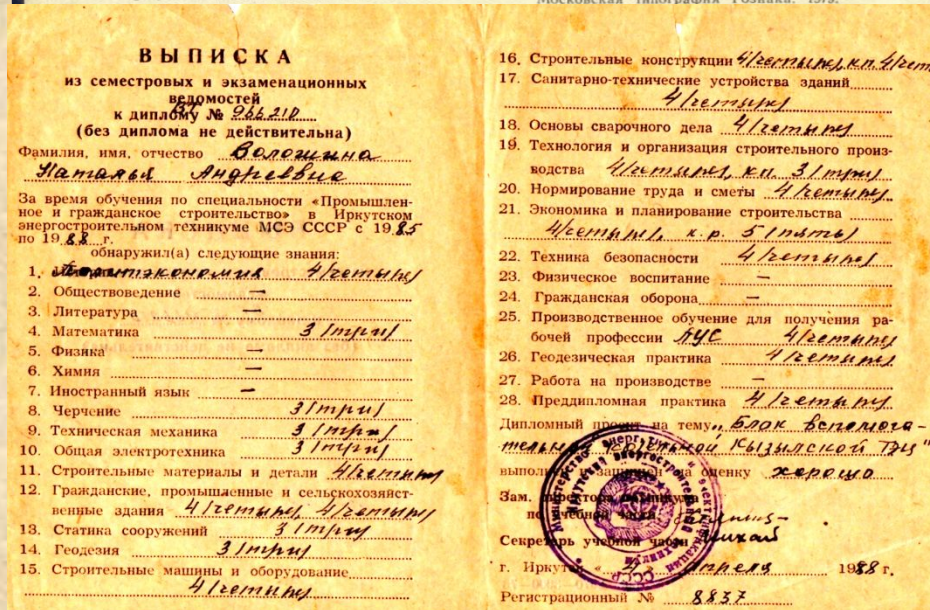 Московская типография Гознака. 1979.
ВЫПИСКА
из семестровых и экзаменационных
ведомостей
к диплому № 966210
(без диплома не действительна)
Фамилия, имя, отчество Волошина
Наталья Андреевна
За время обучения по специальности «Промышлен-
ное и гражданское строительство» в Иркутском
энергостроительном техникуме МСЭ СССР с 1985
по 1988 г.
обнаружил(а) следующие знания:
1. Политэкономия 4/четыре/
2. Обществоведение —
3. Литература —
4. Математика 3/три/
5. Физика —
6. Химия —
7. Иностранный язык —
8. Черчение 3/три/
9. Техническая механика 3/три/
10. Общая электротехника 3/три/
11. Строительные материалы и детали 4/четыре/
12. Гражданские, промышленные и сельскохозяйст-
венные здания 4/четыре/ 4/четыре/
13. Статика сооружений 3/три/
14. Геодезия 3/три/
15. Строительные машины и оборудование
4/четыре/
16. Строительные конструкции 4/четыре/, к.п. 4/чет
17. Санитарно-технические устройства зданий
4/четыре/
18. Основы сварочного дела 4/четыре/
19. Технология и организация строительного произ-
водства 4/четыре/, к.п. 3/три/
20. Нормирование труда и сметы 4/четыре/
21. Экономика и планирование строительства
4/четыре/, к.р. 5/пять/
22. Техника безопасности 4/четыре/
23. Физическое воспитание —
24. Гражданская оборона —
25. Производственное обучение для получения ра-
бочей профессии ЛУС 4/четыре/
26. Геодезическая практика 4/четыре/
27. Работа на производстве —
28. Преддипломная практика 4/четыре/
Дипломный проект на тему „Блок вспомога-
тельных Кызылской ТЭЦ"
выполнил и защитил на оценку хорошо
Зам. директора техникума
по учебной части
Секретарь учебной части
г. Иркутск « апреля 1988 г.
Регистрационный № 8837